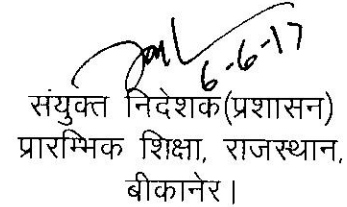 6-6-17
संयुक्त निदेशक(प्रशासन)
प्रारम्भिक शिक्षा, राजस्थान,
बीकानेर।